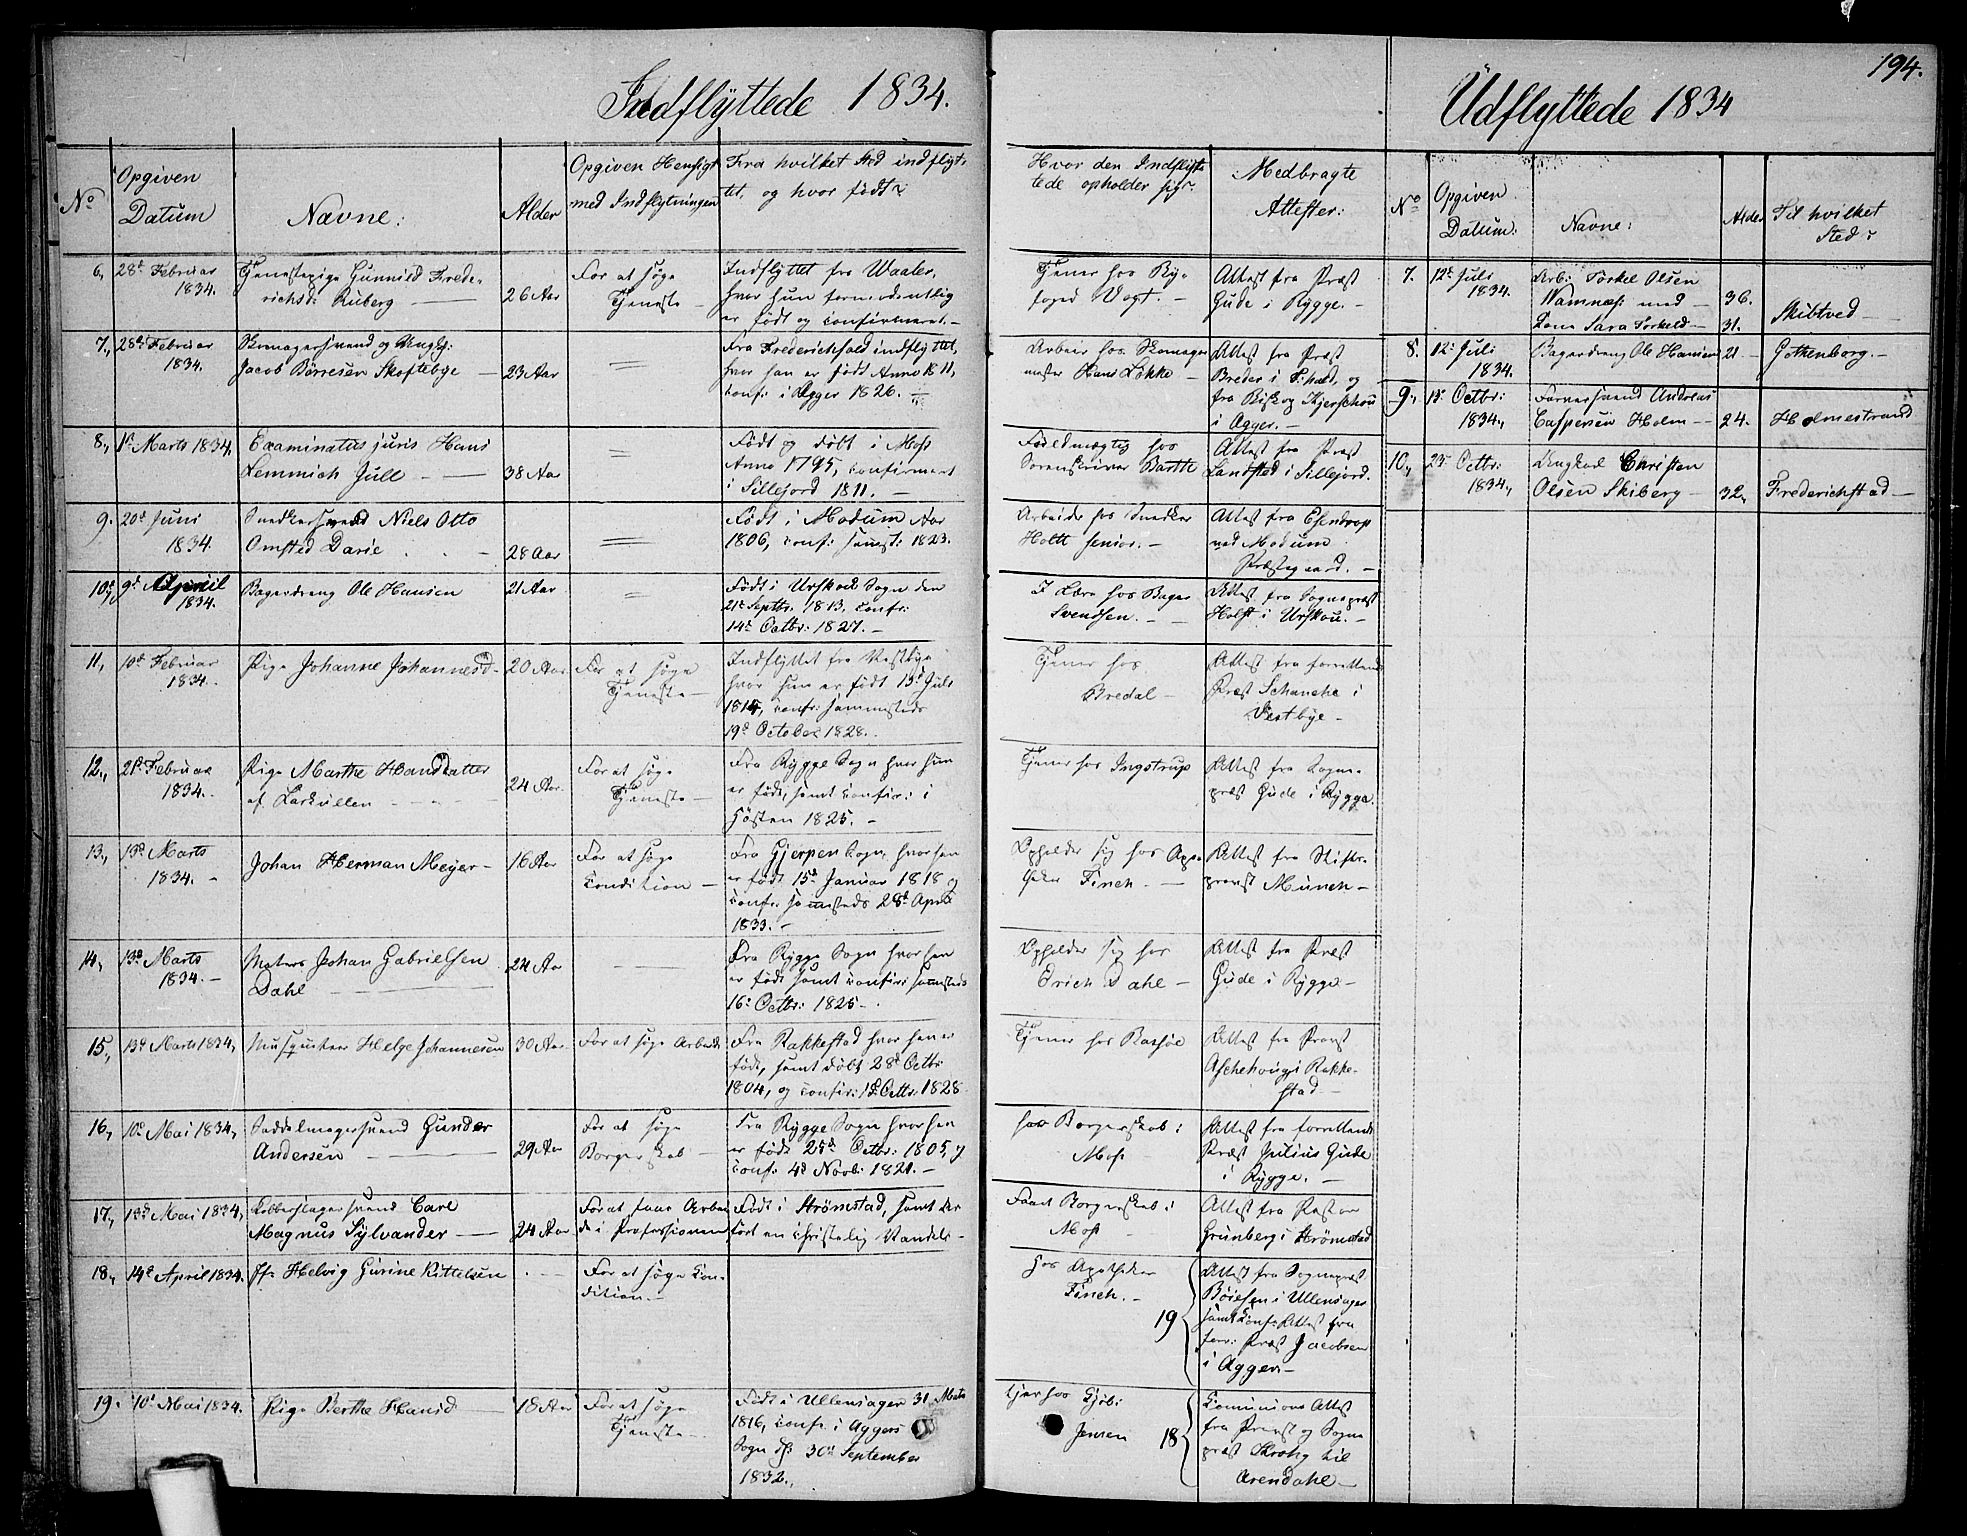 Indflÿttede 1834.
Udflyttede 1834
194.
No
Opgiven
Datum
Navne:
Alder
Opgiven Hensigt
med Indflytningen
Fra hvilket Sted indflyt-
tet, og hvor født?
Hvor den Indflyt-
tede opholder sig?
Medbragte
Attester:
6, 28de Februar
1834.
Tjenestepige Gunnild Frede-
richsd: Ruberg
26 Aar
For at søge
Tjeneste
Indflyttet fra Waaler,
hvor hun formodentlig
er født og confirmeret.
Tjener hos By-
foged Vogt.
Attest fra Præst
Gude i Rygge.
7, 28de Februar
1834.
Skomagersvend og
Jacob Børresen Skoftebye
23 Aar
Fra Frederichshald indflyttet,
hvor han er født Anno 1811,
conf: i Agger 1826.
Arbeider hos Skomager-
mester Hans Løkke
Attest fra Præst
Breder i Fhald, og
fra Biskop
i Agger.
8, 1de Marts 1834,
Examinatus juris Hans
Lemmich Jull
38 Aar
Født og døbt i Moss
Anno 1795, confirmeret
i Sillejord 1811.
Fuldmægtig hos
Sorenskriver Barth
Attest fra Præst
Landsted i Sillejord.
9. 20de Juni
1834.
Snedkersvend Niels Otto
Omsted Darie
28 Aar
Født i Modum Aar
1806, conf: samst: 1823.
Arbeider hos Snedker
Holtt senior.
Attest fra Esendrop
ved Modum
Præstegaard.
10, 9de April
1834.
Bagerdreng Ole Hansen
21 Aar
Født i Urskoug Sogn den
21de Septbr: 1813. confr:
14de Octbr: 1827.
I Lære hos Bager
Svendsen.
Attest fra Sognepræst
Holst i Urskou.
11, 10de Februar
1834.
Pige Johanne Johannesd
20 Aar
For at søge
Tjeneste
Indflyttet fra Vestbye
hvor hun er født 13de Juli
1814, confr: sammesteds
19de October 1828.
Tjener hos
Bredal
Attest fra forrettende
Præst Schanche i
Vestbye
12, 21de Februar
1834.
Pige Marthe Hansdatter
af Larkullen
24 Aar.
For at søge
Tjeneste
Fra Rygge Sogn hvor hun
er født, samt confir: i
Høsten 1825.
Tjener hos Ingstrup
Attest fra Sogne-
præst Gude i Rygge.
13, 13de Marts
1834.
Johan Herman Meyer
16 Aar
For at søge
Condition
Fra Gjerpen Sogn, hvor han
er født 15de Januar 1818 og
confr: sammesteds 28de April
1833.
Opholder sig hos Apo-
theker Finch.
Attest fra Stifts-
provst Münch
14, 13de Marts
1834.
Matros Johan Gabrielsen
Dahl
24 Aar
Fra Rygge Sogn hvor han
er født samt confir: sammesteds
16de Octbr: 1825
Opholder sig hos
Erich Dahl
Attest fra Præst
Gude i Rygge
15, 13de Marts 1834,
Musqueteer Helge Johannesen
30 Aar
For at søge Arbeide
Fra Rakkestad hvor han er
født, samt døbt 28de Octbr
1804, og confir: Octbr: 1828
Tjener hos Bassøe
Attest fra Provst
Aschehoug i Rakke-
stad
16, 10de Mai 1834,
Saddelmagersvend Gunder
Andersen
29 Aar
For at søge
Borgerskab
Fra Rygge Sogn hvor han
er født 25de Octbr: 1805, og
conf: 4de Novb: 1821.
har Borgerskab i
Moss
Attest fra forrettende
Præst Julius Gude
i Rygge.
17, 13de Mai 1834,
Kobberslagersvend Carl
Magnus Sylvander
24 Aar
For at faae Arbei-
de i Professionen
Født i Strömstad, samt der
ført en christelig Vandel.
Faaet Borgerskab i
Moss
Attest fra Pastor
Grünberg i Strömstad
18, 14de April 1834.
Jfr Helvig Gurine Kittelsen
For at søge Con-
dition.
hos Apotheker
Finch.
19
Attest fra Sognepræst
Böiesen i Ullensager
samt Conf: Attest fra
forr: Præst Jacobsen
i Agger
19. 10de Mai 1834.
Pige Berthe Hansd
18 Aar
For at søge
Tjeneste
Født i Ullensager 31 Marts
1816, confr: i Aggers
Sogn d: 30te September
1832.
Tjener hos Kjøb:
Jensen
18
Communions Attest
fra Provst og Sogne
præst Krohg til
Arendahl
No
Opgiven
Datum:
Navne:
Alder
Til hvilket
Sted?
7. 12te Juli
1834.
Arb: Torkel Olsen
Wamnæs med
Kone Sara Torkeld
36.
31.
Skibtved
8. 12te Juli
1834.
Bagerdreng Ole Hansen
21
Gothenborg.
9, 13de Octbr:
1834,
Farversvend Andreas
Caspersen Holm
24.
Holmestrand
10, 25de Octbr:
1834,
Ungkarl Christen
Olsen Skiberg
32,
Frederichstad